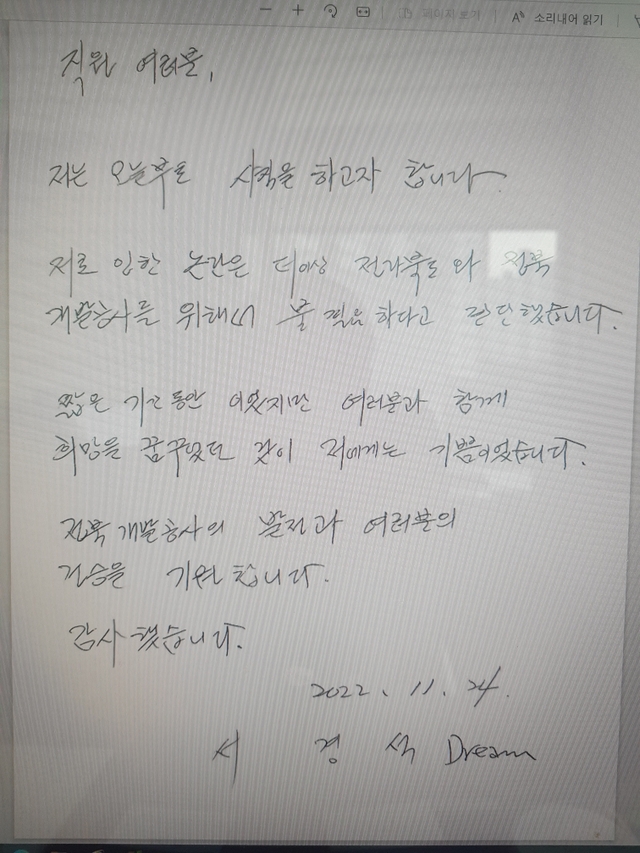 페이지 보기 소리내어 읽기
직원 여러분,
저는 오늘부로 사직을 하고자 합니다.
저로 인한 논란은 더이상 전라북도와 전북
개발공사를 위해서 불필요하다고 판단했습니다.
짧은 기간 동안 이었지만 여러분과 함께
희망을 꿈꾸었던 것이 저에게는 기쁨이었습니다.
전북개발공사의 발전과 여러분의
건승을 기원합니다.
감사했습니다.
2022. 11. 24.
서 경 석 Dream